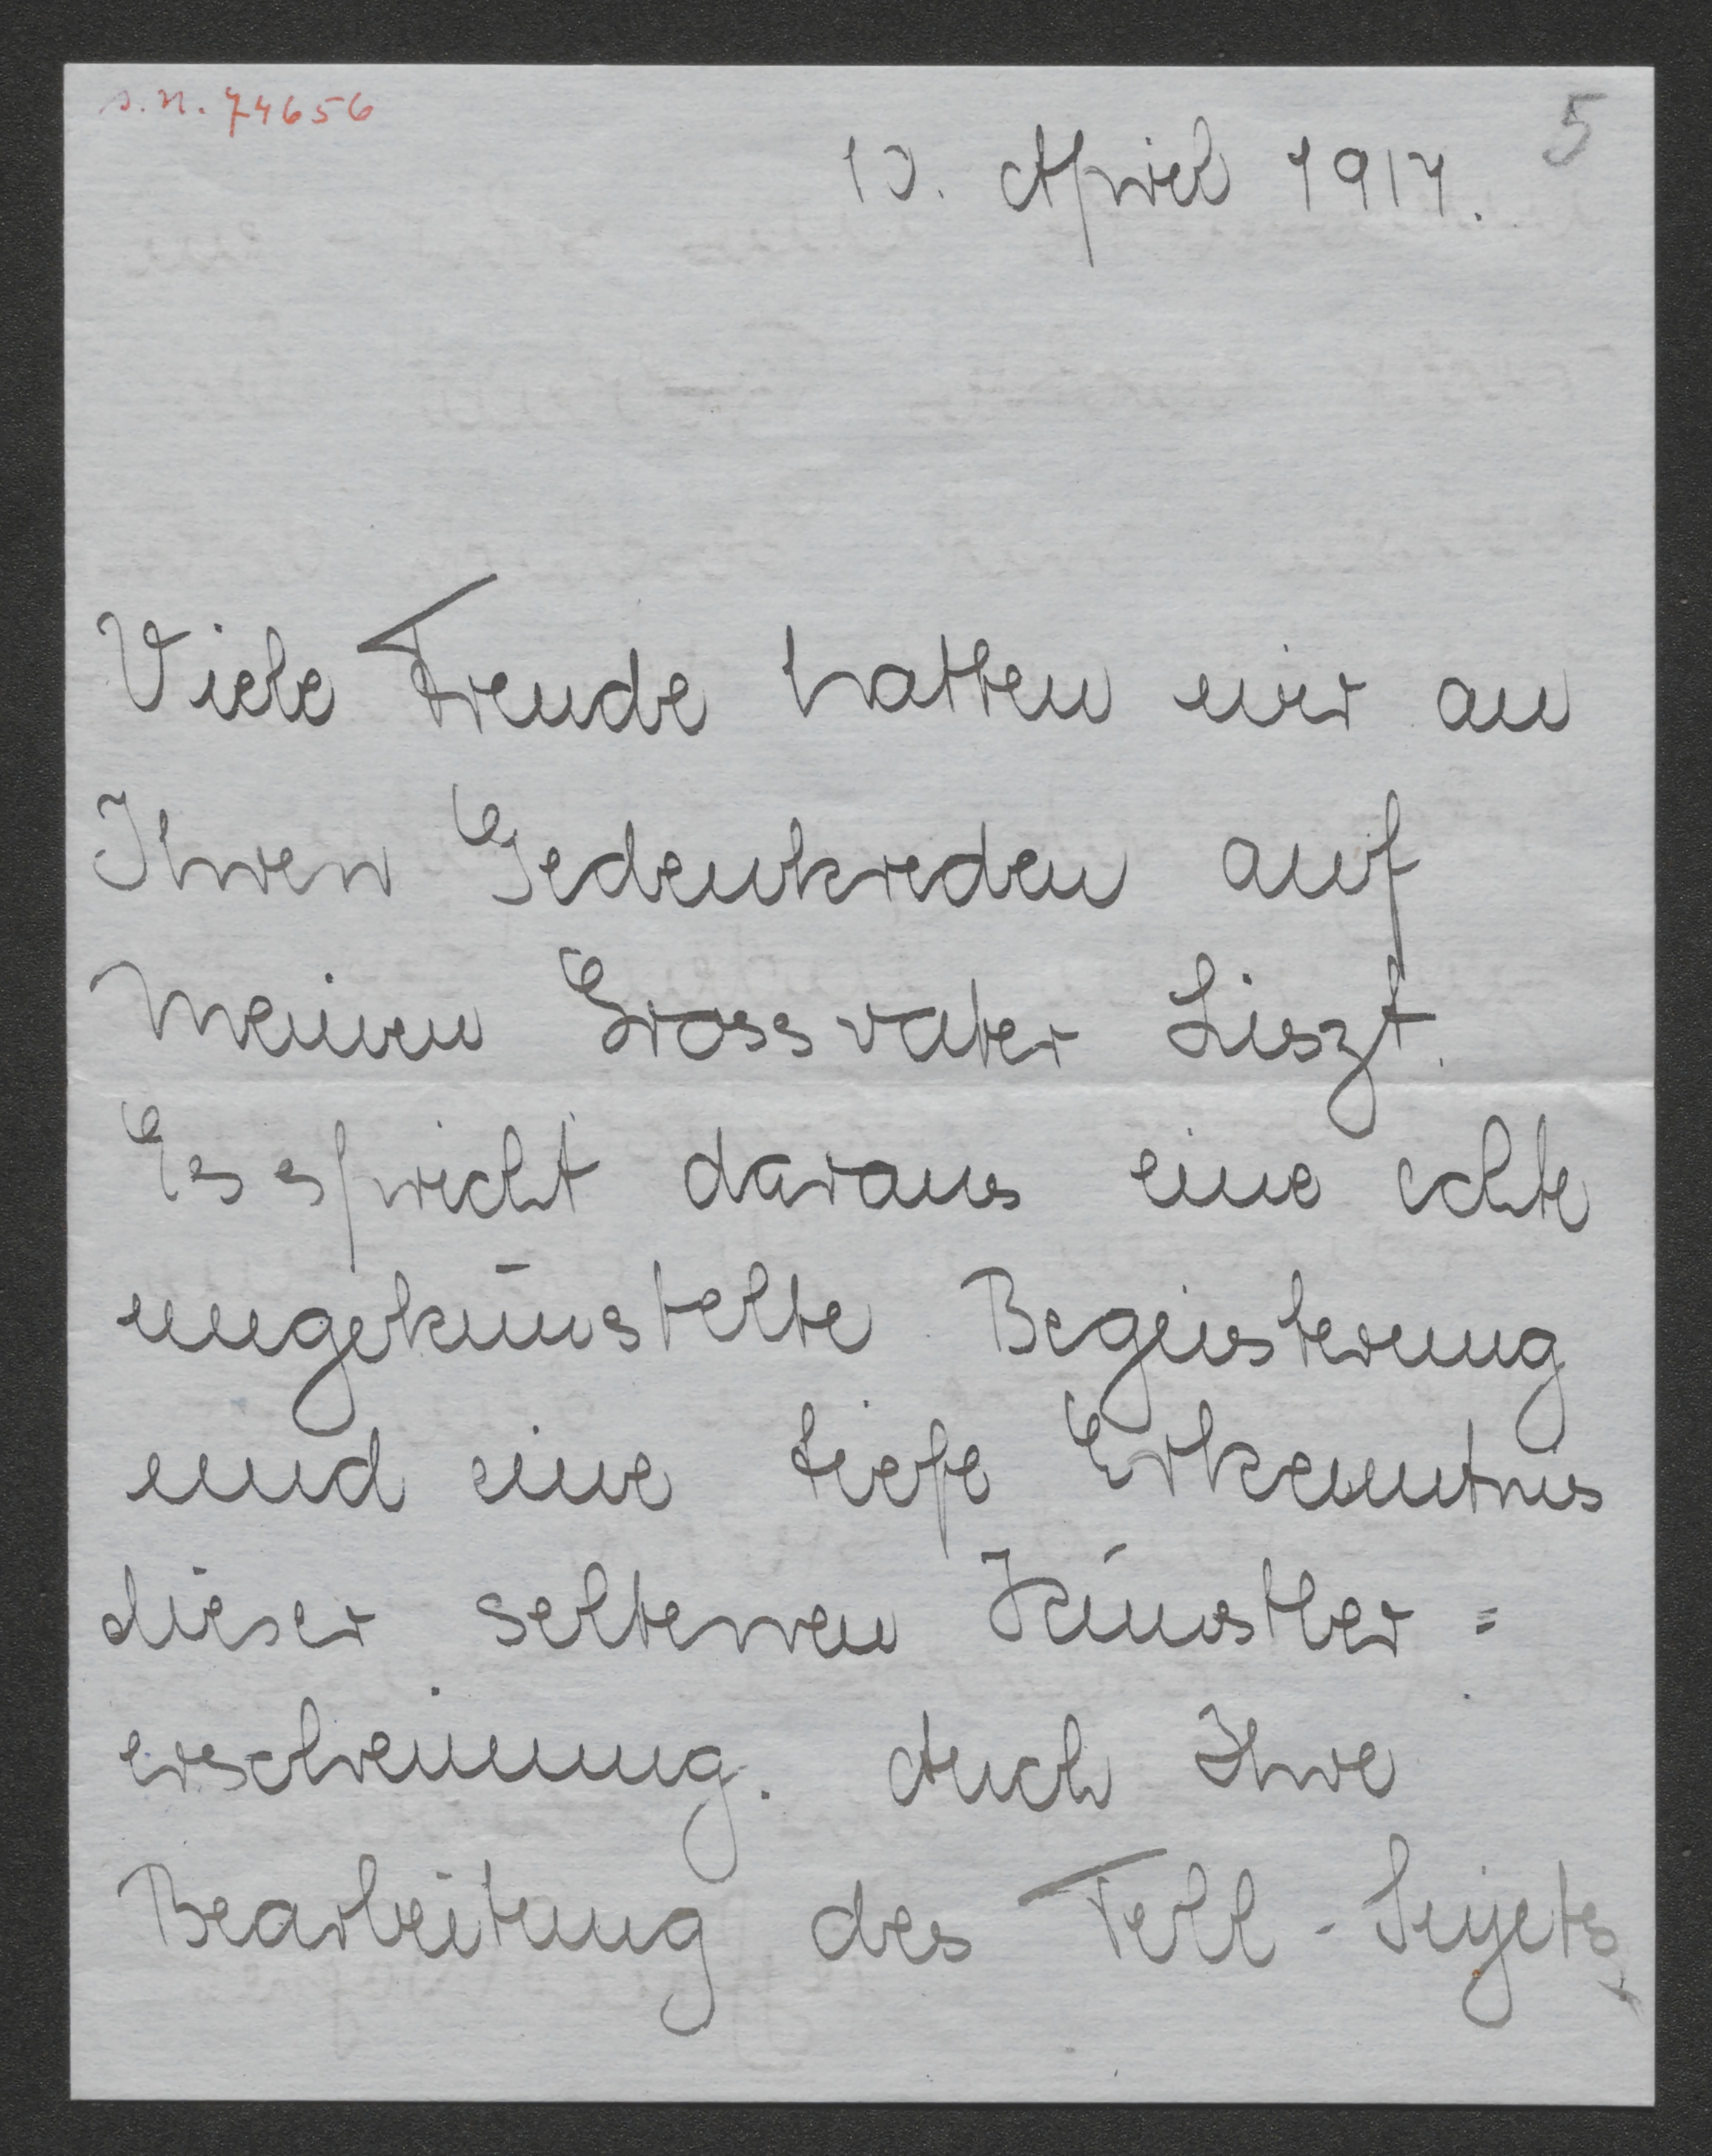 s.n. 74656
5
10. April 1917.
Viele Freude hatten wir an
Ihren Gedenkreden auf
meinen Grossvater Liszt.
Es spricht daraus eine echte
ungekünstelte Begeisterung
und eine tiefe Erkenntnis
dieser seltenen Künstler=
erscheinung. Auch Ihre
Bearbeitung des Tell-Sujets,